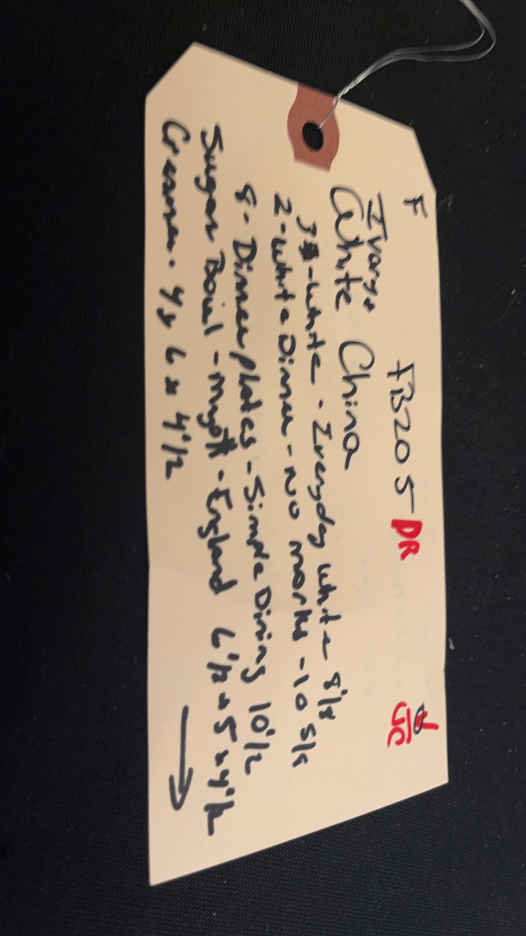 F FB205 DR
Ivory +
White China
3 - white - Everyday white 8 1/8
2 - white Dinner - No marks - 10 5/8
8 - Dinner plates - Simple Dining 10 1/2
Sugar Bowl - Myott - England 6 1/2 x 5 x 4 1/2
Creamer - 4 x 6 x 4 1/2
→